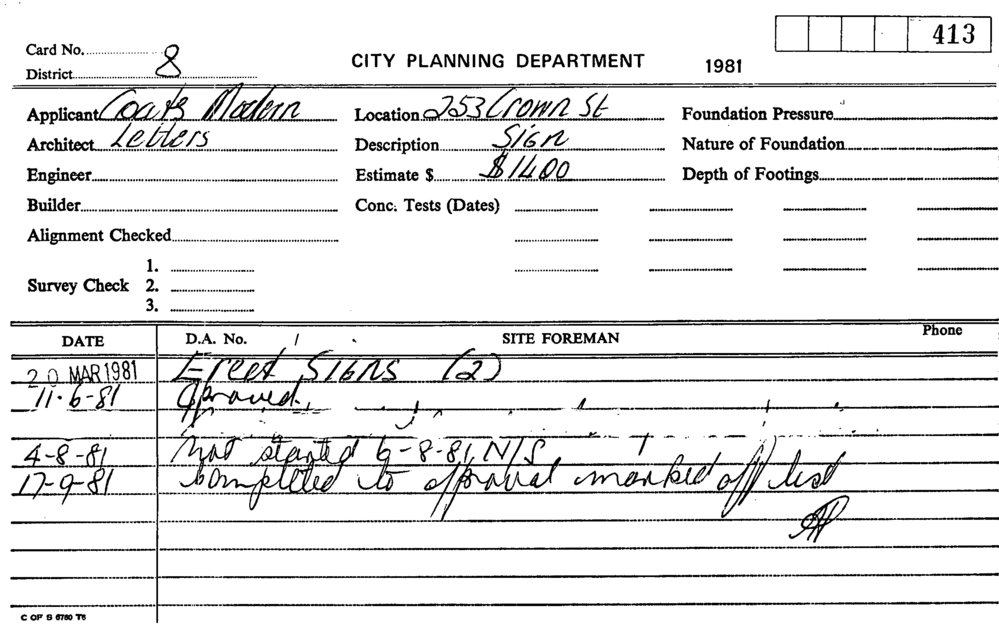 413
Card No. 8
CITY PLANNING DEPARTMENT 1981
District
Applicant Coats Modern Location 253 Crown St Foundation Pressure
Architect Letters Description Sign Nature of Foundation
Engineer Estimate $ $1400 Depth of Footings
Builder Conc. Tests (Dates)
Alignment Checked
1.
Survey Check 2.
3.
DATE D.A. No. SITE FOREMAN Phone
20 MAR 1981 Erect Signs (2)
11-6-81 Aproved.
4-8-81 Not started 6-8-81, N/S
17-9-81 Completed to approval marked off list
C OF S 6760 T6